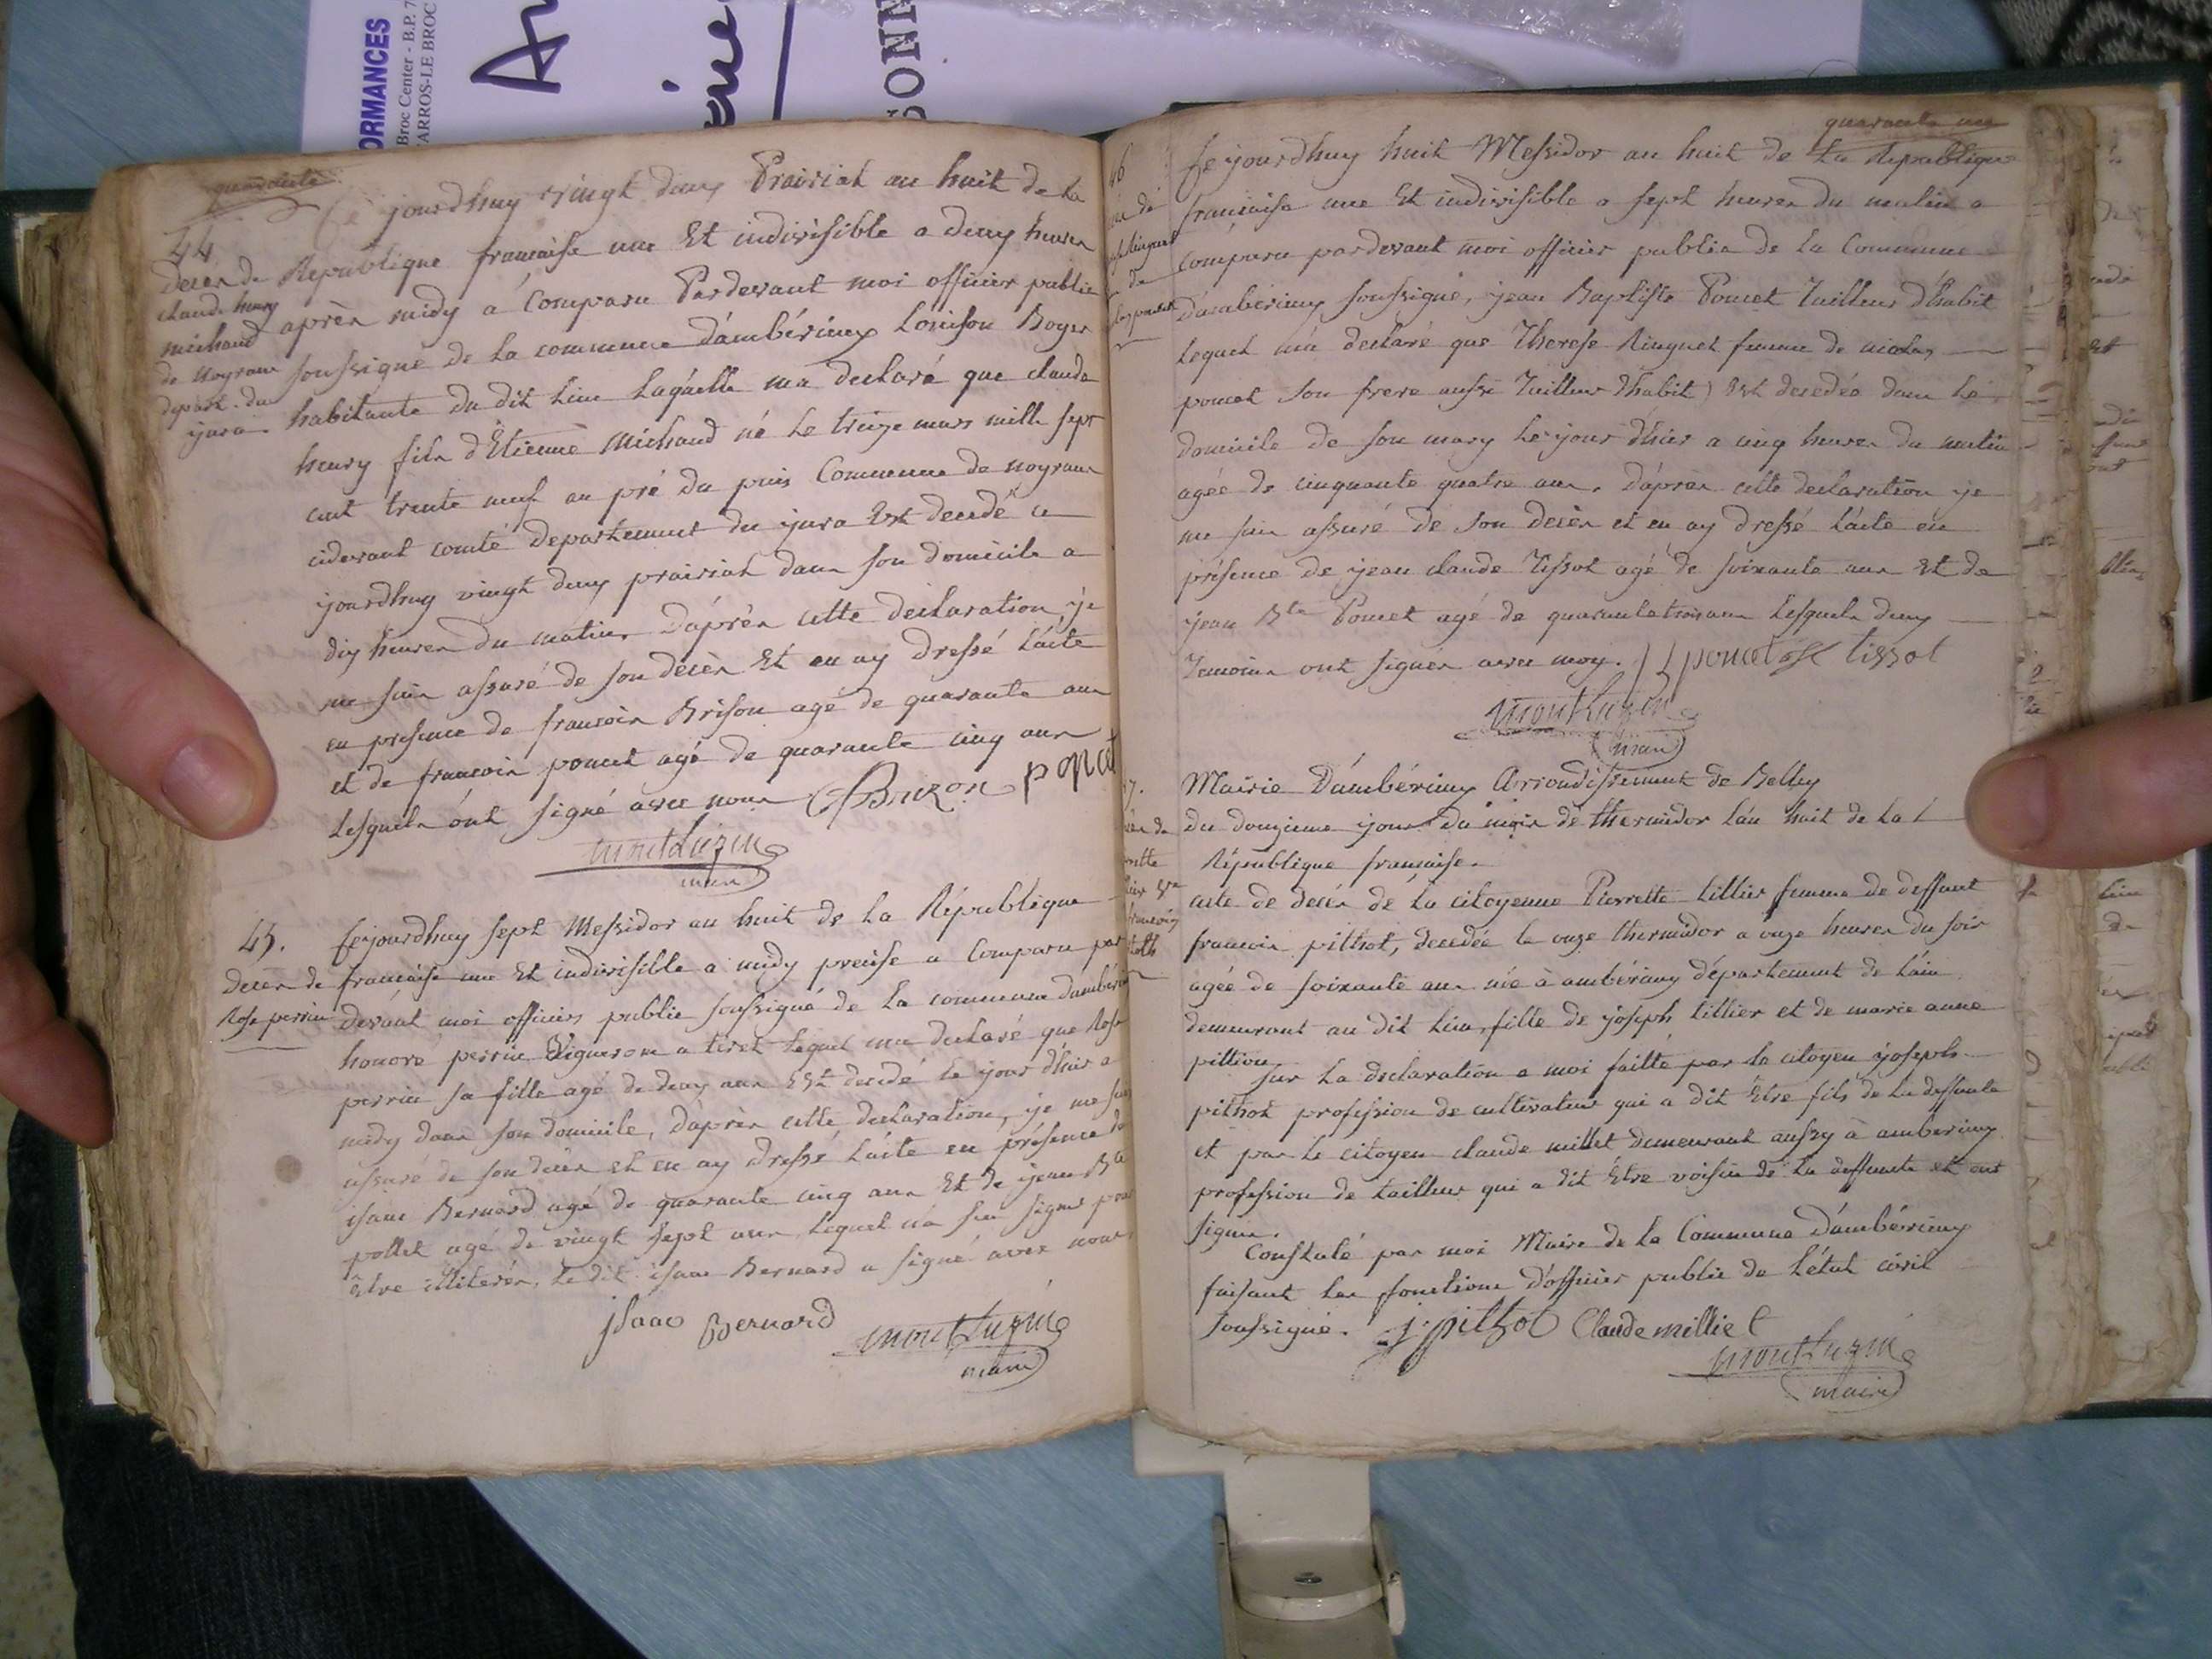 ORMANCES
Broc Center - B.P. 7
ARROS-LE BROC
quarante
44
Decèr de
claude henry
michaud
de nogrene
depart. du
jura
Ce jourdhuy vingt deux Prairial an huit de La
Republique francaise une Et indivisible a deux heures
après midy a Comparu Pardevant moi officier public
soussigné de La commune d'ambérieux Louison Boyer
habitante du dit lieu Laquelle ma declaré que claude
henry fils d'Etienne Michaud né Le treize mars mille sept
cent trente neuf au pré du puis Commune de nogrene
cidevant comté departement du jura Est decedé ce
jourdhuy vingt deux prairial dans son domicile a
dix heures du matin, D'après cette declaration je
me suis assuré de son decès Et en ay dressé L'acte
en presence de francois Brison agé de quarante ans
et de francois poncet agé de quarante cinq ans
Lesquels ont signé avec nous Brizon poncet
montluzin
maire
45.
Decès de
Rose perrin
Cejourdhuy sept Messidor an huit de La République
francaise une Et indivisible a midy precise a Comparu par
devant moi officier public soussigné de La commune d'ambérieux
honoré perrin Vigneron a tiret Lequel ma declaré que Rose
perrin sa fille agé de deux ans Est decedé Le jour d'hier a
midy dans son domicile, d'après cette declaration, je me suis
assuré de son decès et en ay dressé L'acte en présence de
isaac Bernard agé de quarante cinq ans Et de jean Bte
pollet agé de vingt sept ans, Lequel n'a su signer pour
être illiterés, Le dit isaac Bernard a signé avec nous,
isaac Bernard montluzin
maire
quarante un
46
Ce jourdhuy huit Messidor an huit de La Republique
francaise une Et indivisible a sept heures du matin a
comparu pardevant moi officier public de La Commune
D'ambérieux soussigné, jean Baptiste Poncet Tailleur d'habit
Lequel m'a declaré que Therese Ringuet femme de nicolas
poncet son frere aussi Tailleur dhabit) Est decedée dans Le
domicile de son mary Le jour d'hier a cinq heures du matin
agée de cinquante quatre ans, D'après cette declaration je
me suis assuré de son decès et en ay dressé L'acte en
présence de jean claude Tissot agé de soixante ans Et de
jean Bte Poncet agé de quarante trois ans Lesquels deux
Temoins ont signés avec moy. J poncet JC tissot
montluzin
maire
7.
Mairie D'ambérieux Arrondissement de Belley
du douzieme jour du mois de thermidor L'an huit de La
République francaise.
acte de decès de La citoyenne Pierrette tillier femme de deffunt
francois pithot, decedée le onze thermidor a onze heures du soir
agée de soixante ans née à ambérieux département de L'ain
demeurant au dit Lieu, fille de joseph tillier et de marie anne
pittion
sur La declaration a moi faitte par Le citoyen joseph
pithot profession de cultivateur qui a dit Etre fils de La deffunte
et par Le citoyen claude millet demeurant aussy à amberieux
profession de tailleur qui a dit Etre voisin de La deffunte et ont
signés.
Constaté par moi Maire de La Commune D'ambérieux
faisant Les fonctions d'officier public de L'état civil
soussigné. j. pithot Claude milliet
montluzin
maire